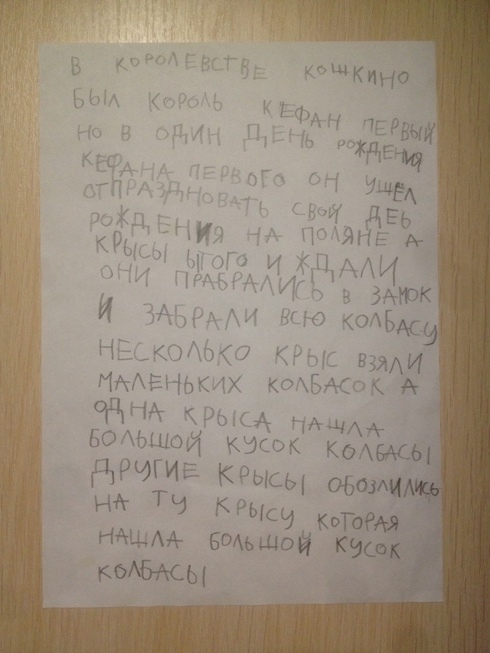 В КОРОЛЕВСТВЕ КОШКИНО
БЫЛ КОРОЛЬ КЕФАН ПЕРВЫЙ
НО В ОДИН ДЕНЬ РОЖДЕНИЯ
КЕФАНА ПЕРВОГО ОН УШЕЛ
ОТПРАЗДНОВАТЬ СВОЙ ДЕЬ
РОЖДЕНИЯ НА ПОЛЯНЕ А
КРЫСЫ ЫГОГО И ЖДАЛИ
ОНИ ПРАБРАЛИСЬ В ЗАМОК
И ЗАБРАЛИ ВСЮ КОЛБАСУ
НЕСКОЛЬКО КРЫС ВЗЯЛИ
МАЛЕНЬКИХ КОЛБАСОК А
ОДНА КРЫСА НАШЛА
БОЛЬШОЙ КУСОК КОЛБАСЫ
ДРУГИЕ КРЫСЫ ОБОЗЛИЛИСЬ
НА ТУ КРЫСУ КОТОРАЯ
НАШЛА БОЛЬШОЙ КУСОК
КОЛБАСЫ